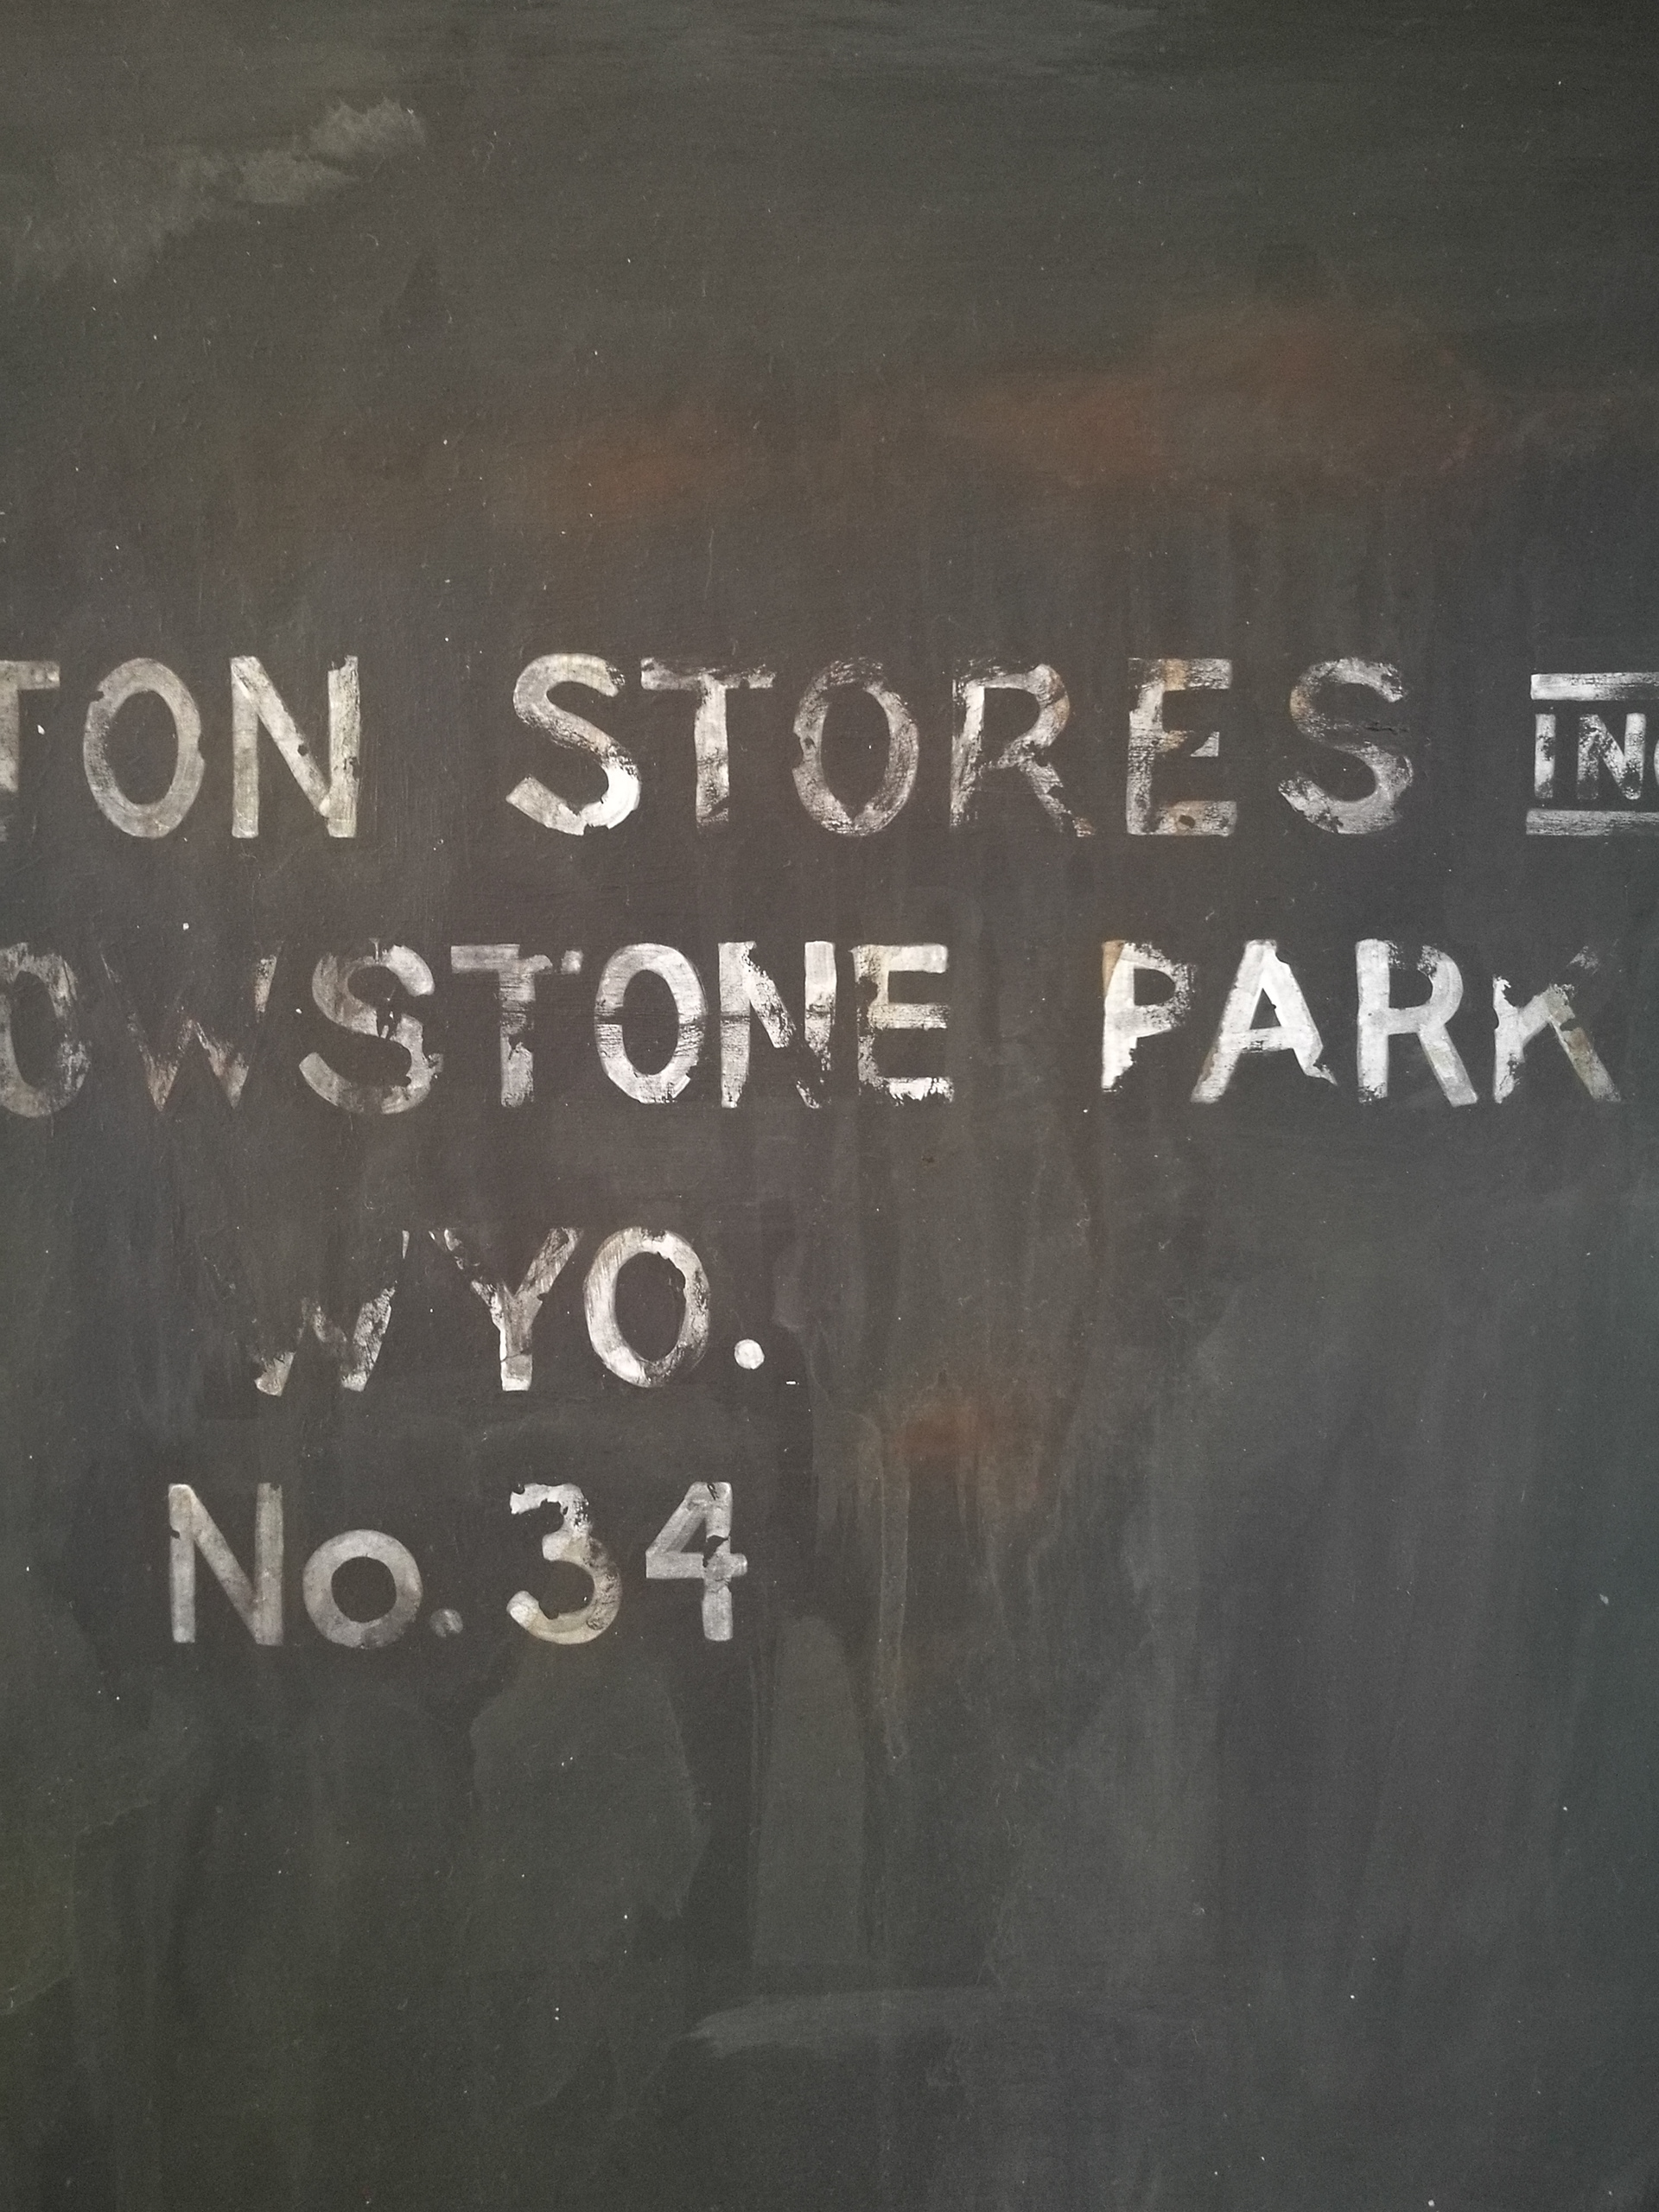 TON STORES INC
OWSTONE PARK
WYO.
No. 34